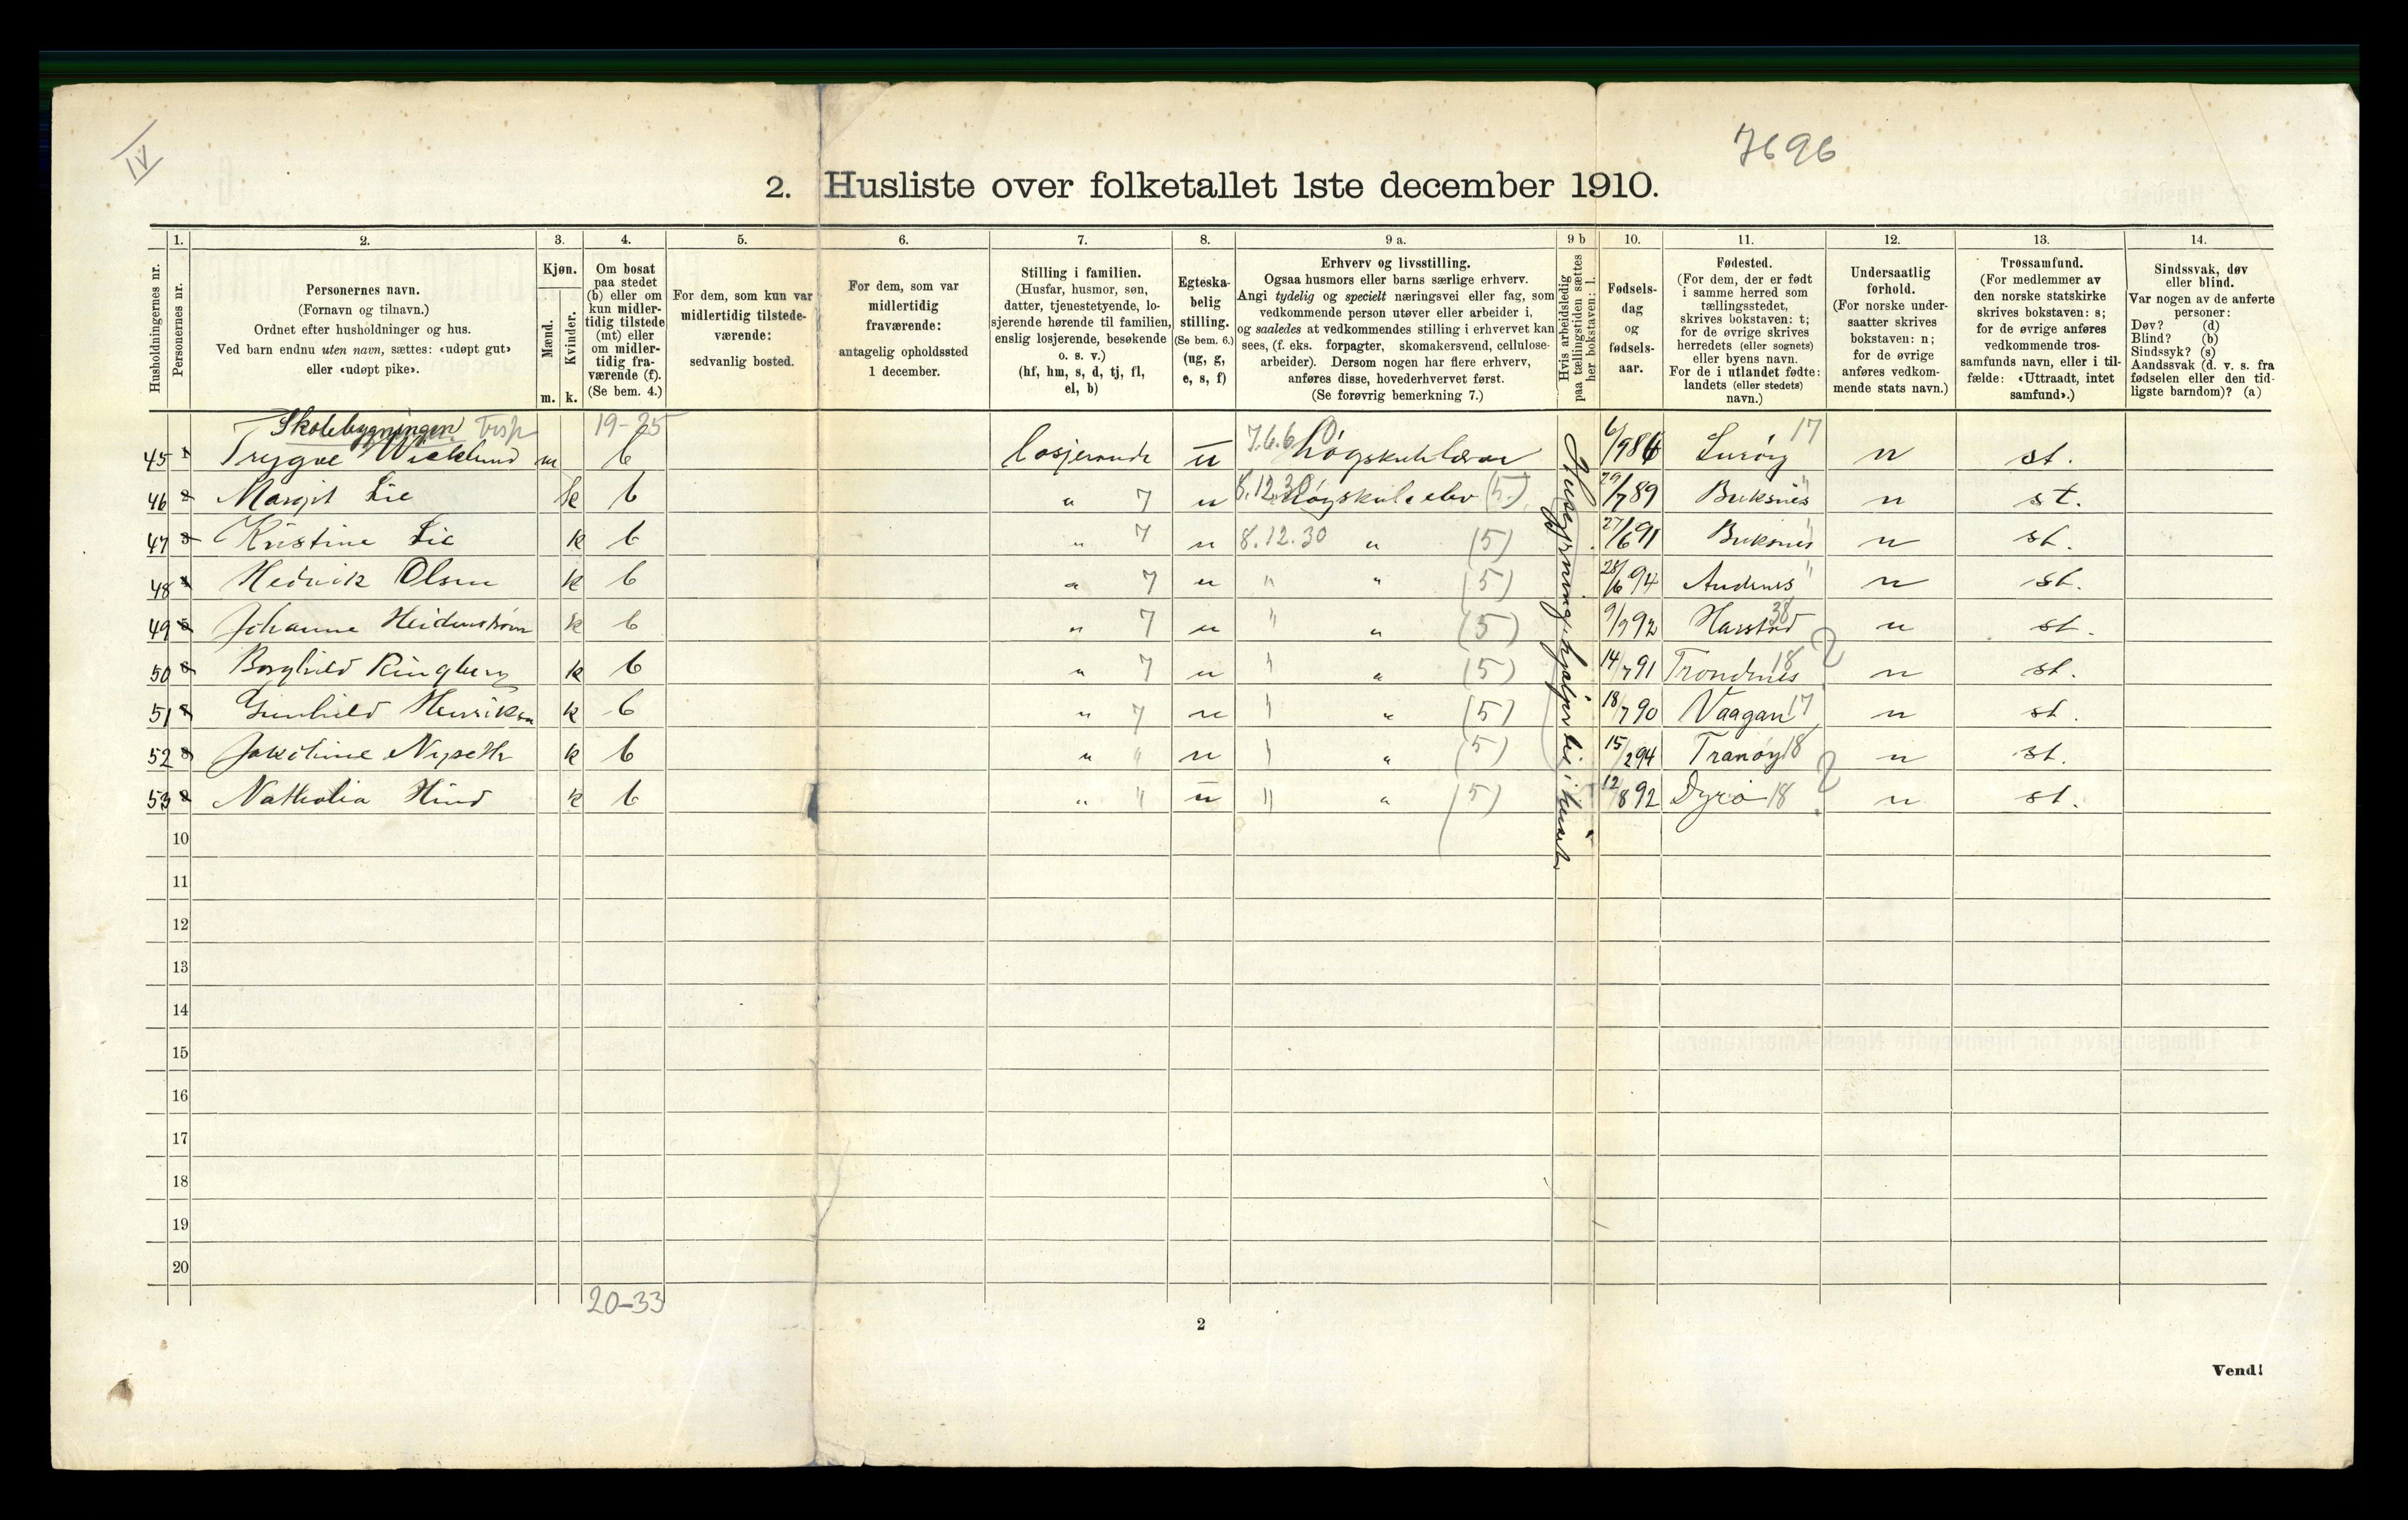 IV
7696
2. Husliste over folketallet 1ste december 1910.
Husholdningernes nr.
1. Personernes nr.
2. Personernes navn.
(Fornavn og tilnavn.)
Ordnet efter husholdninger og hus.
Ved barn endnu uten navn, sættes: «udøpt gut»
eller «udøpt pike».
3. Kjøn.
Mænd. m.
Kvinder. k.
4. Om bosat
paa stedet
(b) eller om
kun midler-
tidig tilstede
(mt) eller
om midler-
tidig fra-
værende (f).
(Se bem. 4.)
5. For dem, som kun var
midlertidig tilstede-
værende:
sedvanlig bosted.
6. For dem, som var
midlertidig
fraværende:
antagelig opholdssted
1 december.
7. Stilling i familien.
(Husfar, husmor, søn,
datter, tjenestetyende, lo-
sjerende hørende til familien,
enslig losjerende, besøkende
o. s. v.)
(hf, hm, s, d, tj, fl,
el, b)
8. Egteska-
belig
stilling.
(Se bem. 6.)
(ug, g,
e, s, f)
9 a. Erhverv og livsstilling.
Ogsaa husmors eller barns særlige erhverv.
Angi tydelig og specielt næringsvei eller fag, som
vedkommende person utøver eller arbeider i,
og saaledes at vedkommendes stilling i erhvervet kan
sees, (f. eks. forpagter, skomakersvend, cellulose-
arbeider). Dersom nogen har flere erhverv,
anføres disse, hovederhvervet først.
(Se forøvrig bemerkning 7.)
9 b Hvis arbeidsledig
paa tællingstiden sættes
her bokstaven: l.
10. Fødsels-
dag
og
fødsels-
aar.
11. Fødested.
(For dem, der er født
i samme herred som
tællingsstedet,
skrives bokstaven: t;
for de øvrige skrives
herredets (eller sognets)
eller byens navn.
For de i utlandet fødte:
landets (eller stedets)
navn.)
12. Undersaatlig
forhold.
(For norske under-
saatter skrives
bokstaven: n;
for de øvrige
anføres vedkom-
mende stats navn.)
13. Trossamfund.
(For medlemmer av
den norske statskirke
skrives bokstaven: s;
for de øvrige anføres
vedkommende tros-
samfunds navn, eller i til-
fælde: «Uttraadt, intet
samfund».)
14. Sindssvak, døv
eller blind.
Var nogen av de anførte
personer:
Døv? (d)
Blind? (b)
Sindssyk? (s)
Aandssvak (d. v. s. fra
fødselen eller den tid-
ligste barndom)? (a)
Skolebygningen 19-25
45 1 Trygve Wicklund m b losjerande u 7.6.60 høgskulelærar 6/9 86 Lurøy 17 n st.
46 2 Margit Lie k b " 7 u 8.12.30 Høgskule elev (5) 29/7 89 Buksnes " n st.
47 3 Kristine Lie k b " 7 u 8.12.30 " (5) 27/6 91 Buksnes " n st.
48 4 Hedvik Olsen k b " 7 u " " (5) 28/6 94 Andenes " n st.
49 5 Johanne Heidenstrøm k b " 7 u " " (5) 9/9 92 Harstad 38 n st.
50 6 Borghild Ringberg k b " 7 u " " (5) 14/7 91 Trondenes 18 n st.
51 7 Gunhild Henriksen k b " 7 u " " (5) 18/7 90 Vaagan 17 n st.
52 8 Jakobine Nypeth k b " " u " " (5) 15/2 94 Tranøy 18 n st.
53 9 Nathalia Hind k b " " u " " (5) 12/8 92 Dyrø 18 n st.
10
11
12
13
14
15
16
17
18
19
20
20-33
2
Vend!